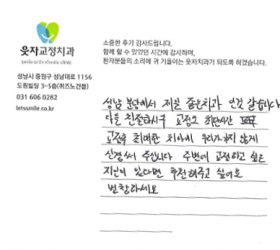 웃자교정치과
소중한 후기 감사드립니다.
함께 할 수 있었던 시간에 감사하며,
환자분들의 소리에 귀 기울이는 웃자치과가 되도록 하겠습니다.
성남시 중원구 성남대로 1156
도원빌딩 3~5층(퀴즈노건물)
031 606 0282
letsmile.co.kr
성남 분당에서 제일 좋은치과 인것 같습니다
다들 친절하시구 교정으로 하면서
교정을 최대한 치아에 무리가지 않게
신경써 주십니다 주변에 교정하고 싶은
지인이 있다면 추천해주고 싶어요
번창하세요